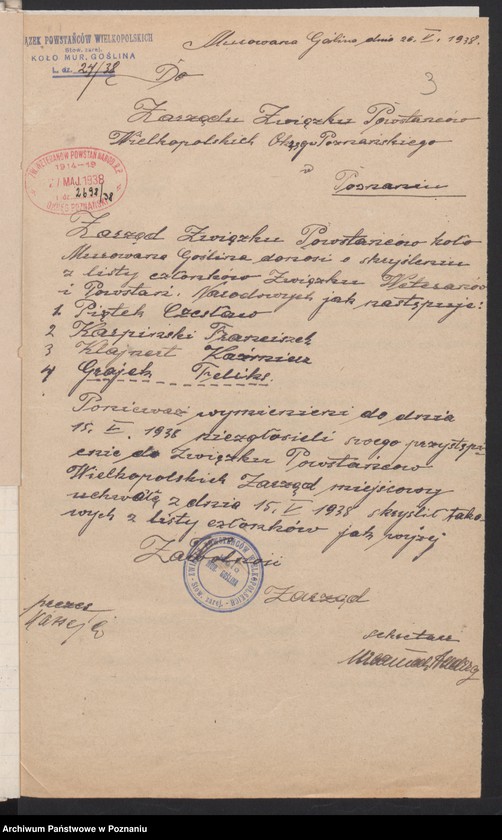 ĄZEK POWSTAŃCÓW WIELKOPOLSKICH
KOŁO MUR. GOŚLINA
L. dz. 24/38
Murowana Goślina dnia 26. V. 1938.
3
Do
Zarządu Związku Powstańców
Wielkopolskich Okręgu Poznańskiego
w
Poznaniu
ZW. WETERANÓW POWSTAŃ NAROD. R.P.
1914-19
27 MAJ. 1938
L. dz. 2698/38
OKRĘG POZNAŃSKI
Zarząd Związku Powstańców koło
Murowana Goślina donosi o skryśleniu
z listy członków Związku Weteranów
i Powstań. Narodowych jak następuje:
1 Piątek Czesław
2 Karpiński Franciszek
3 Klajnert Kazimierz
4 Grajek Feliks.
Ponieważ wymienieni do dnia
15. V. 1938 niezgłosieli swego przystąpi-
enie do Związku Powstańców
Wielkopolskich Zarząd miejscowy
uchwałą z dnia 15. V 1938 skryślił tako-
wych z listy członków jak wyżej
Zarząd
prezes
sekretarz
Archiwum Państwowe w Poznaniu